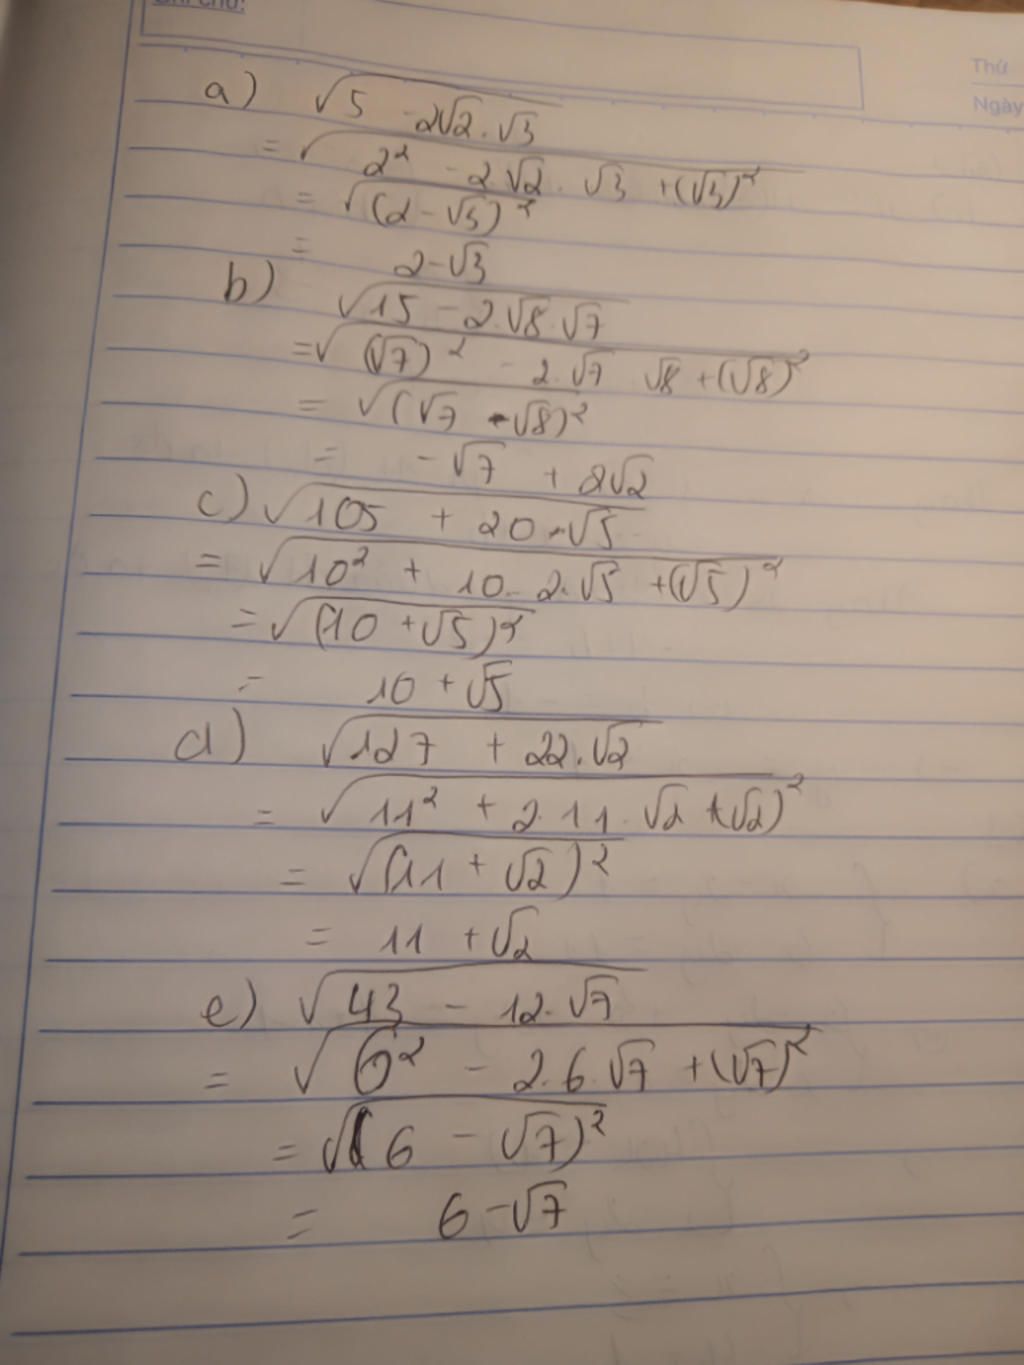 Ghi chú:
Thứ
Ngày
a) √5 - 2√2 . √3
= √2² - 2 √2 . √3 + (√3)²
= √(2 - √3)²
= 2 - √3
b) √15 - 2.√8.√7
= √(√7)² - 2.√7 √8 + (√8)²
= √(√7 - √8)²
= -√7 + 2√2
c) √105 + 20.√5
= √10² + 10.2.√5 + (√5)²
= √(10 + √5)²
= 10 + √5
d) √127 + 22.√2
= √11² + 2.11.√2 + (√2)²
= √(11 + √2)²
= 11 + √2
e) √43 - 12.√7
= √6² - 2.6.√7 + (√7)²
= √(6 - √7)²
= 6 - √7